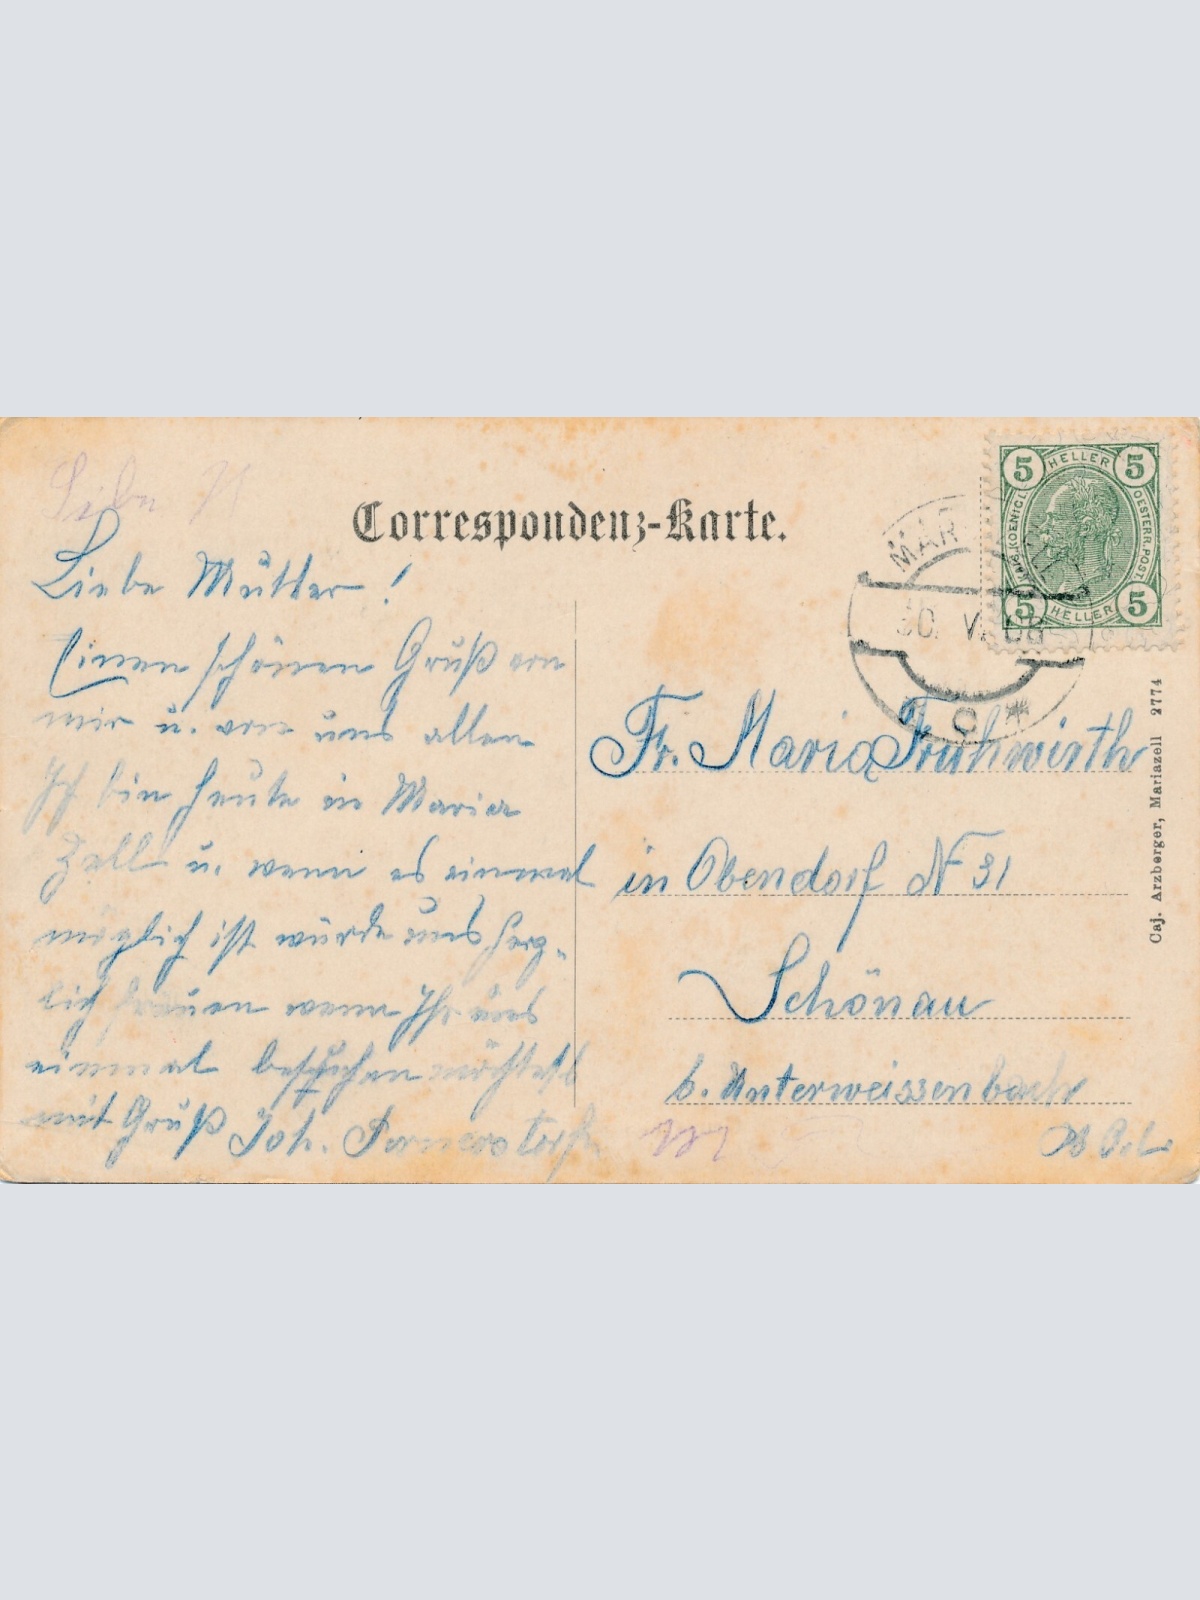 Correspondenz-Karte.
Liebe
Liebe Mutter!
Einen schönen Gruß von
mir u. von uns allen
Ich bin heute in Maria
Zell u. wenn es einmal
möglich ist würde uns herz-
lich freuen wenn Ihr uns
einmal besuchen möchtest
mit Gruß Joh.
5 HELLER 5
KAIS. KOENIGL. OESTERR. POST.
5 HELLER 5
MAR
30. V. 08
c *
Fr. Maria Fruhwirth
in Obendorf N 31
Schönau
b. Unterweissenbach
Caj. Arzberger, Mariazell 2774